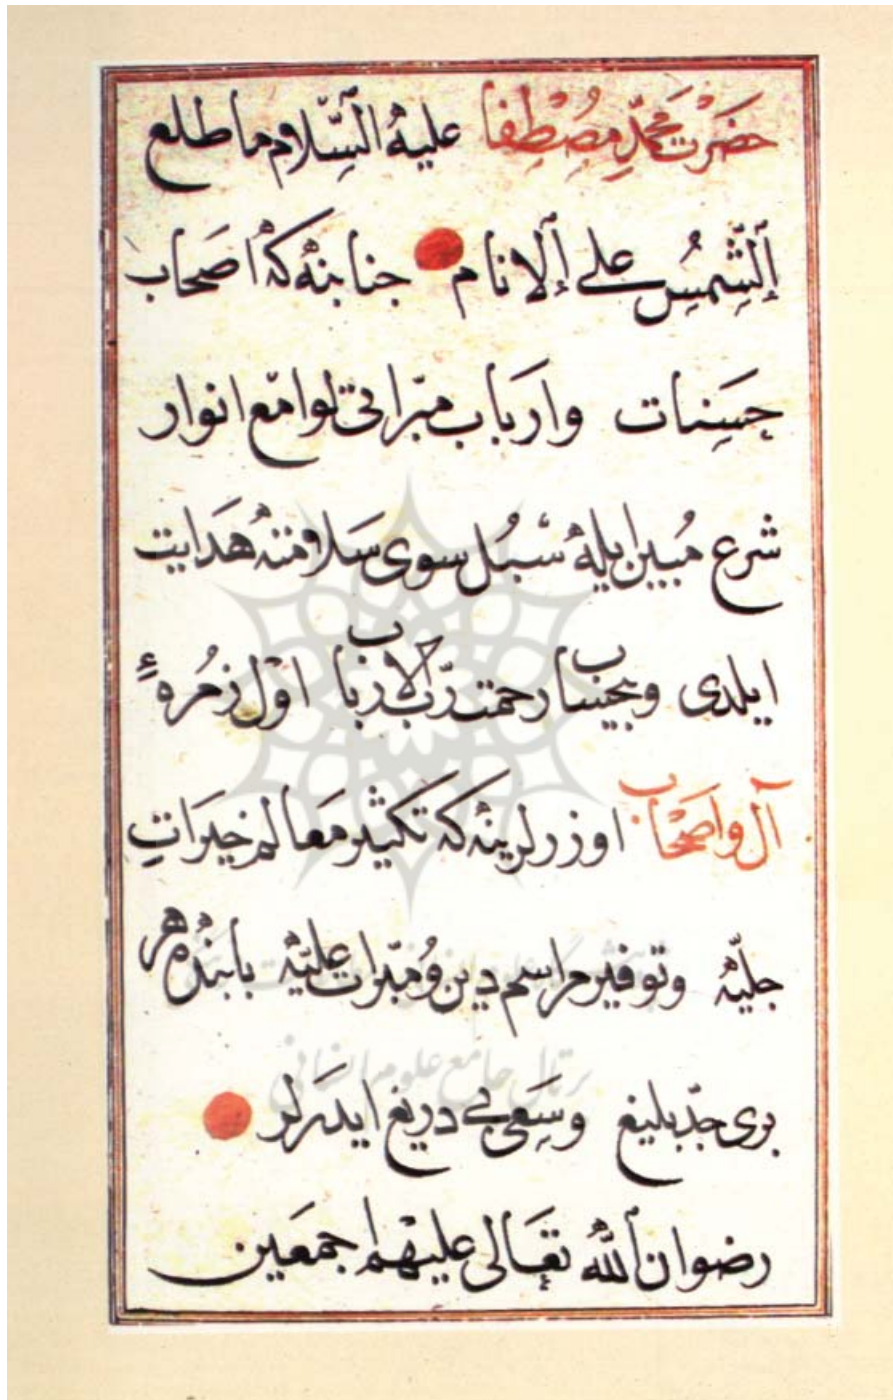 حضرت محمد مصطفا عليه السلام ما طلع
الشمس على الانام جنابنه كه اصحاب
حسنات وارباب مبراتى لوامع انوار
شرع مبين ايله سبل سوى سلامته هدايت
ايلدى وبيحساب رحمت رب الارباب اول زمرهٔ
آل واصحاب اوزرلرينه كه تكثير معالم خيرات
جليّه وتوفير مراسم دين ومبرات عليّه بابنده هر
برى جدّ بليغ وسعى بى دريغ ايدرلر
رضوان الله تعالى عليهم اجمعين
پرتال جامع علوم انسانی